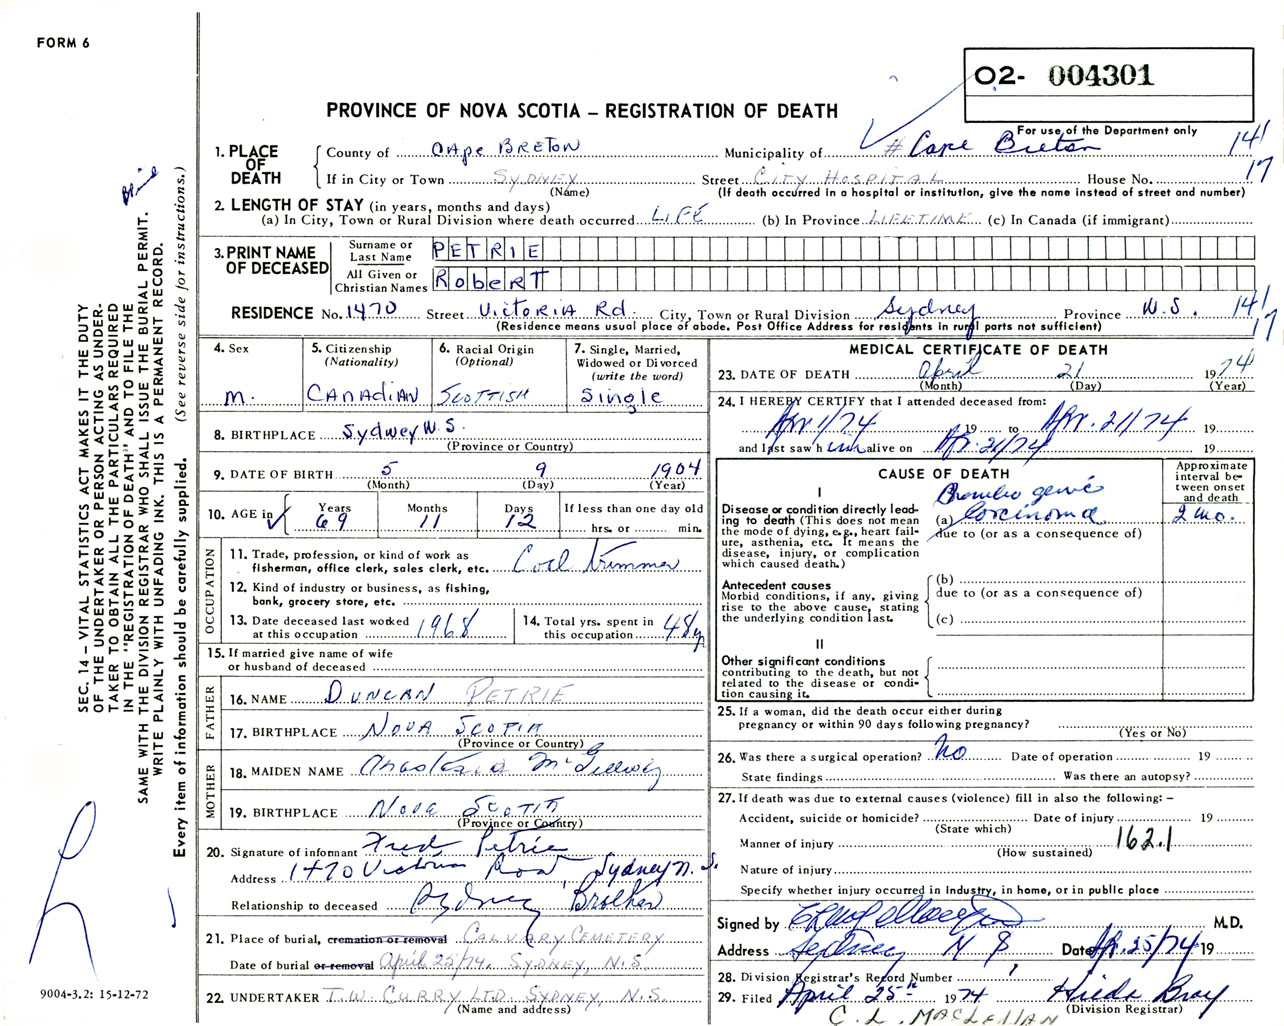 FORM 6
O2- 004301
PROVINCE OF NOVA SCOTIA – REGISTRATION OF DEATH
For use of the Department only
1. PLACE OF DEATH
County of Cape BRETON Municipality of # Cape Breton 141
If in City or Town SYDNEY Street CITY HOSPITAL House No. 17
(Name) (If death occurred in a hospital or institution, give the name instead of street and number)
2. LENGTH OF STAY (in years, months and days)
(a) In City, Town or Rural Division where death occurred LIFE (b) In Province LIFETIME (c) In Canada (if immigrant)
3. PRINT NAME OF DECEASED
Surname or Last Name PETRIE
All Given or Christian Names RobeRT
RESIDENCE No. 1470 Street VicToRiA Rd. City, Town or Rural Division Sydney Province N.S. 141
17
(Residence means usual place of abode. Post Office Address for residents in rural parts not sufficient)
4. Sex
m.
5. Citizenship
(Nationality)
CANAdiAN
6. Racial Origin
(Optional)
SCOTTISH
7. Single, Married,
Widowed or Divorced
(write the word)
Single
8. BIRTHPLACE Sydney N.S.
(Province or Country)
9. DATE OF BIRTH 5 9 1904
(Month) (Day) (Year)
10. AGE in Years Months Days If less than one day old
69 11 12 hrs. or min.
OCCUPATION
11. Trade, profession, or kind of work as
fisherman, office clerk, sales clerk, etc. Coal Trimmer
12. Kind of industry or business, as fishing,
bank, grocery store, etc.
13. Date deceased last worked
at this occupation 1968
14. Total yrs. spent in
this occupation 48 yr
15. If married give name of wife
or husband of deceased
FATHER
16. NAME DUNCAN PETRIE
17. BIRTHPLACE NOVA SCOTIA
(Province or Country)
MOTHER
18. MAIDEN NAME
19. BIRTHPLACE NOVA SCOTIA
(Province or Country)
20. Signature of informant Fred Petrie
Address 1470 Victoria Road, Sydney N.S.
Relationship to deceased Sydney Brother
21. Place of burial, cremation or removal CALVARY CEMETERY
Date of burial or removal April 25/74. SYDNEY, N.S.
22. UNDERTAKER T.W. CURRY LTD. SYDNEY, N.S.
(Name and address)
MEDICAL CERTIFICATE OF DEATH
23. DATE OF DEATH April 21 1974
(Month) (Day) (Year)
24. I HEREBY CERTIFY that I attended deceased from:
Apr 1/74 19 to Apr. 21/74 19
and last saw him alive on Ap. 21/74 19
CAUSE OF DEATH
Approximate
interval be-
tween onset
and death
I
Disease or condition directly lead-
ing to death (This does not mean
the mode of dying, e.g., heart fail-
ure, asthenia, etc. It means the
disease, injury, or complication
which caused death.)
Broncho genic
(a) Carcinoma 2 mo.
due to (or as a consequence of)
Antecedent causes
Morbid conditions, if any, giving
rise to the above cause, stating
the underlying condition last.
(b)
due to (or as a consequence of)
(c)
II
Other significant conditions
contributing to the death, but not
related to the disease or condi-
tion causing it.
25. If a woman, did the death occur either during
pregnancy or within 90 days following pregnancy?
(Yes or No)
26. Was there a surgical operation? No Date of operation 19
State findings Was there an autopsy?
27. If death was due to external causes (violence) fill in also the following: –
Accident, suicide or homicide? Date of injury 19
(State which)
Manner of injury 162.1
(How sustained)
Nature of injury
Specify whether injury occurred in industry, in home, or in public place
Signed by M.D.
Address Sydney N S Date Ap. 25/74 19
28. Division Registrar's Record Number
29. Filed April 25th 1974 Hilda Bray
(Division Registrar)
C. L. MACLELLAN
SEC. 14 – VITAL STATISTICS ACT MAKES IT THE DUTY
OF THE UNDERTAKER OR PERSON ACTING AS UNDER-
TAKER TO OBTAIN ALL THE PARTICULARS REQUIRED
IN THE "REGISTRATION OF DEATH" AND TO FILE THE
SAME WITH THE DIVISION REGISTRAR WHO SHALL ISSUE THE BURIAL PERMIT.
WRITE PLAINLY WITH UNFADING INK. THIS IS A PERMANENT RECORD.
Every item of information should be carefully supplied. (See reverse side for instructions.)
9004-3.2: 15-12-72